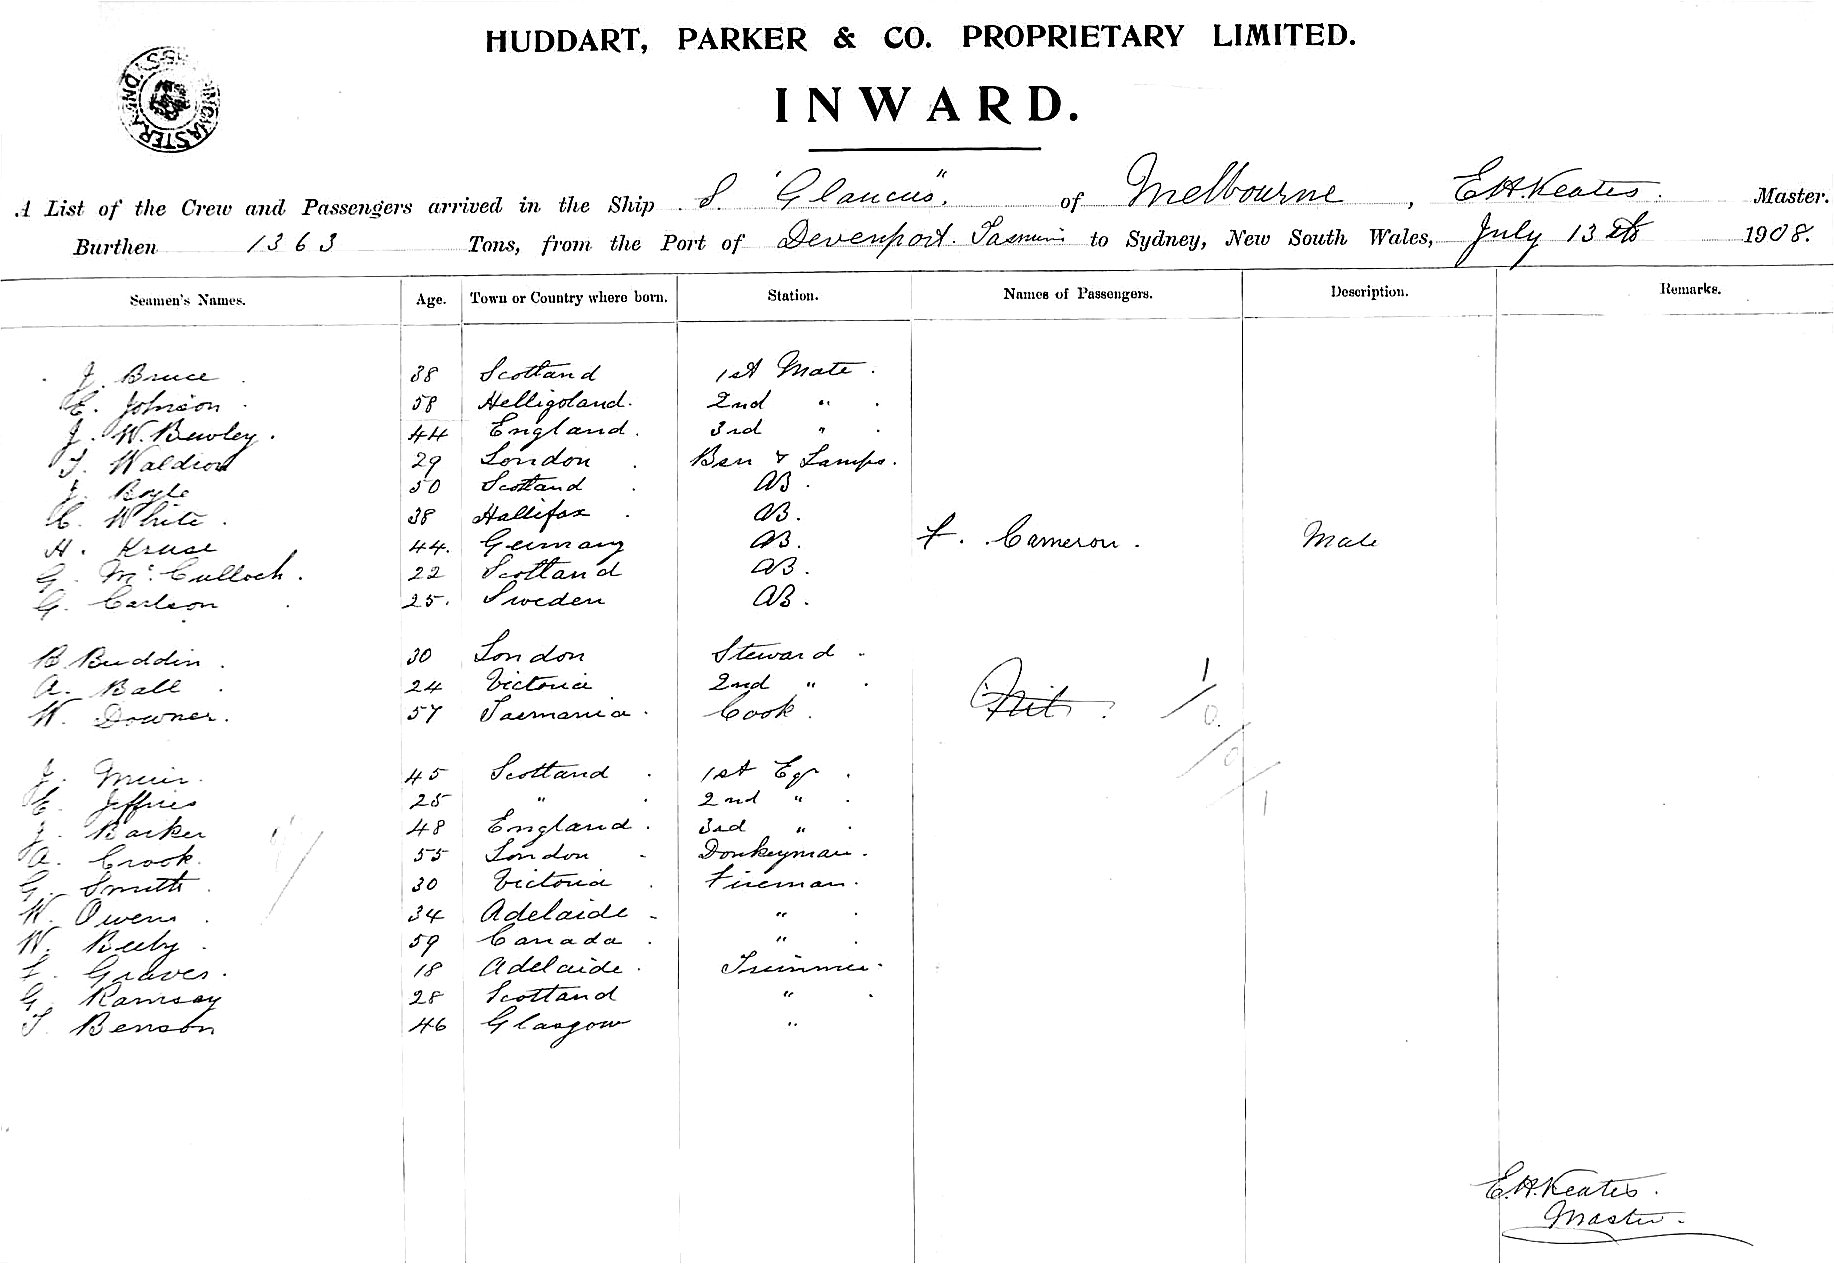 HUDDART, PARKER & CO. PROPRIETARY LIMITED.
INWARD.
A List of the Crew and Passengers arrived in the Ship S. "Glaucus". of Melbourne, E.H.Keates. Master.
Burthen 1363 Tons, from the Port of Devenport. to Sydney, New South Wales, July 13th 1908.
Seamen's Names. Age. Town or Country where born. Station. Names of Passengers. Description. Remarks.
J. Bruce 38 Scotland 1st Mate.
C. Johnson 58 Helligoland. 2nd "
J. W. Bewley. 44 England. 3rd "
T. Waldron 29 London Bsn & Lamps.
J. Boyle 50 Scotland AB.
C. White. 38 Hallifax AB.
H. Kruse 44. Germany AB. F. Cameron. Male
G. McCulloch. 22 Scotland AB.
G. Carlson 25. Sweden AB.
B. Buddin. 30 London Steward
A. Ball 24 Victoria 2nd "
W. Downer. 57 Tasmania. Cook. Nil.
J. Muir. 45 Scotland 1st Egr
E. Jeffries 25 " 2nd "
J. Barker 48 England. 3rd "
A. Crook. 55 London Donkeyman.
G. Smith 30 Victoria Fireman.
W. Owens 34 Adelaide "
W. Beeby 59 Canada "
F. Graves. 18 Adelaide. Trimmer.
G. Ramsay 28 Scotland "
T. Benson 46 Glasgow "
E.H.Keates.
Master.